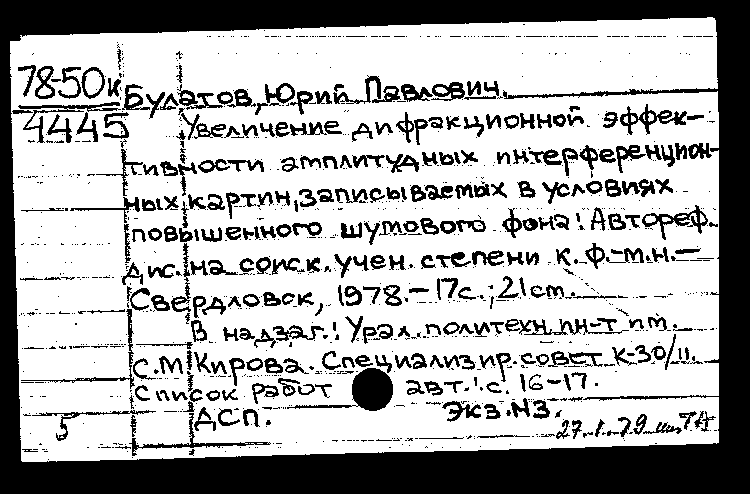 78-50к Булатов, Юрий Павлович.
4445 Увеличение дифракционной эффек-
тивности амплитудных интерференцион-
ных картин, записываемых в условиях
повышенного шумового фона: Автореф.
дис. на соиск. учен. степени к. ф.-м.н.—
Свердловск, 1978.— 17с.; 21 cm.
В надзаг.: Урал. политехн. ин-т им.
С.М Кирова. Специализир. совет К-30/II.
Список работ авт.: с. 16-17.
5 ДСП. Экз.N3.
27.1.79